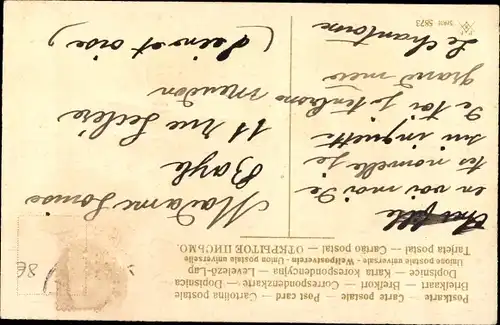 Postkarte — Carte postale — Post card — Cartolina postale
Briefkaart — Brefkort — Correspondenzkarte — Dopisnica
Dopisnice — Karta korespondencyjna — Levelező-Lap —
Unione postale universale - Weltpostverein - Union postale universelle
Tarjeta postal — Cartão postal — ОТКРЫТОЕ ПИСЬМО.
Madame Louise
Bayle
11 rue Leclère
meudon
(Seine et oise)
en voi moi De
tes nouvelle je
sui inquiette
De toi je tenbrasse
grand mère
Le chantoine
5873